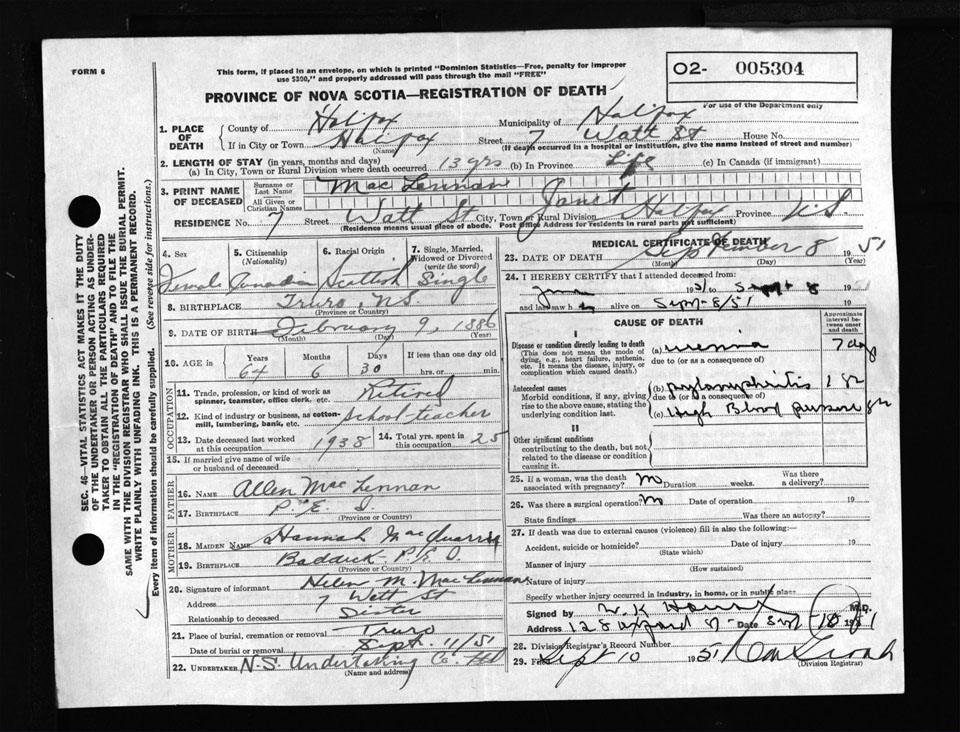 FORM 6
This form, if placed in an envelope, on which is printed "Dominion Statistics—Free, penalty for improper
use $300," and properly addressed will pass through the mail "FREE"
O2- 005304
For use of the Department only
PROVINCE OF NOVA SCOTIA—REGISTRATION OF DEATH
1. PLACE OF DEATH
County of Halifax Municipality of Halifax
If in City or Town Halifax Street 7 Watt St House No.
(Name) (If death occurred in a hospital or institution, give name instead of street and number)
2. LENGTH OF STAY (in years, months and days)
(a) In City, Town or Rural Division where death occurred 13 yrs (b) In Province Life (c) In Canada (if immigrant)
3. PRINT NAME OF DECEASED
Surname or Last Name MacLennan
All Given or Christian Names Janet
RESIDENCE No. 7 Street Watt St City, Town or Rural Division Halifax Province N.S.
(Residence means usual place of abode. Post Office Address for residents in rural parts not sufficient)
4. Sex
Female
5. Citizenship
(Nationality)
Canadian
6. Racial Origin
Scottish
7. Single, Married,
Widowed or Divorced
(write the word)
Single
8. BIRTHPLACE Truro, NS
(Province or Country)
9. DATE OF BIRTH February 9, 1886
(Month) (Day) (Year)
10. AGE in Years Months Days If less than one day old
64 6 30 hrs. or min.
OCCUPATION
11. Trade, profession, or kind of work as
spinner, teamster, office clerk, etc. Retired
12. Kind of industry or business, as cotton-
mill, lumbering, bank, etc. School teacher
13. Date deceased last worked
at this occupation 1938
14. Total yrs. spent in
this occupation 25
15. If married give name of wife
or husband of deceased
FATHER
16. NAME Allen MacLennan
17. BIRTHPLACE P.E.I.
(Province or Country)
MOTHER
18. MAIDEN NAME Hannah MacQuarrie
19. BIRTHPLACE Baddeck P.E.I.
(Province or Country)
20. Signature of informant Helen M. MacLennan
Address 7 Watt St
Relationship to deceased Sister
21. Place of burial, cremation or removal Truro
Date of burial or removal Sept. 11/51
22. UNDERTAKER N.S. Undertaking Co. Ltd
(Name and address)
MEDICAL CERTIFICATE OF DEATH
23. DATE OF DEATH September 8 1951
(Month) (Day) (Year)
24. I HEREBY CERTIFY that I attended deceased from:
June 1951 to Sept 8 1951
and last saw h alive on Sept-8/51 19
CAUSE OF DEATH
Approximate
interval be-
tween onset
and death
I
Disease or condition directly leading to death
(This does not mean the mode of
dying, e.g., heart failure, asthenia,
etc. It means the disease, injury, or
complication which caused death.)
(a) uremia 7 day
due to (or as a consequence of)
Antecedent causes
Morbid conditions, if any, giving
rise to the above cause, stating the
underlying condition last.
(b) pyelonephritis 1 yr
due to (or as a consequence of)
(c) High Blood pressure
II
Other significant conditions
contributing to the death, but not
related to the disease or condition
causing it.
25. If a woman, was the death
associated with pregnancy? No Duration weeks. Was there
a delivery?
26. Was there a surgical operation? No Date of operation 19
State findings Was there an autopsy?
27. If death was due to external causes (violence) fill in also the following:—
Accident, suicide or homicide? Date of injury 19
(State which)
Manner of injury
(How sustained)
Nature of injury
Specify whether injury occurred in industry, in home, or in public place
Signed by M.D.
Address Date Sept 1951
28. Division Registrar's Record Number
29. Filed Sept 10 1951
(Division Registrar)
SEC. 46—VITAL STATISTICS ACT MAKES IT THE DUTY
OF THE UNDERTAKER OR PERSON ACTING AS UNDER-
TAKER TO OBTAIN ALL THE PARTICULARS REQUIRED
IN THE "REGISTRATION OF DEATH" AND TO FILE THE
SAME WITH THE DIVISION REGISTRAR WHO SHALL ISSUE THE BURIAL PERMIT.
WRITE PLAINLY WITH UNFADING INK. THIS IS A PERMANENT RECORD.
Every item of information should be carefully supplied. (See reverse side for instructions.)